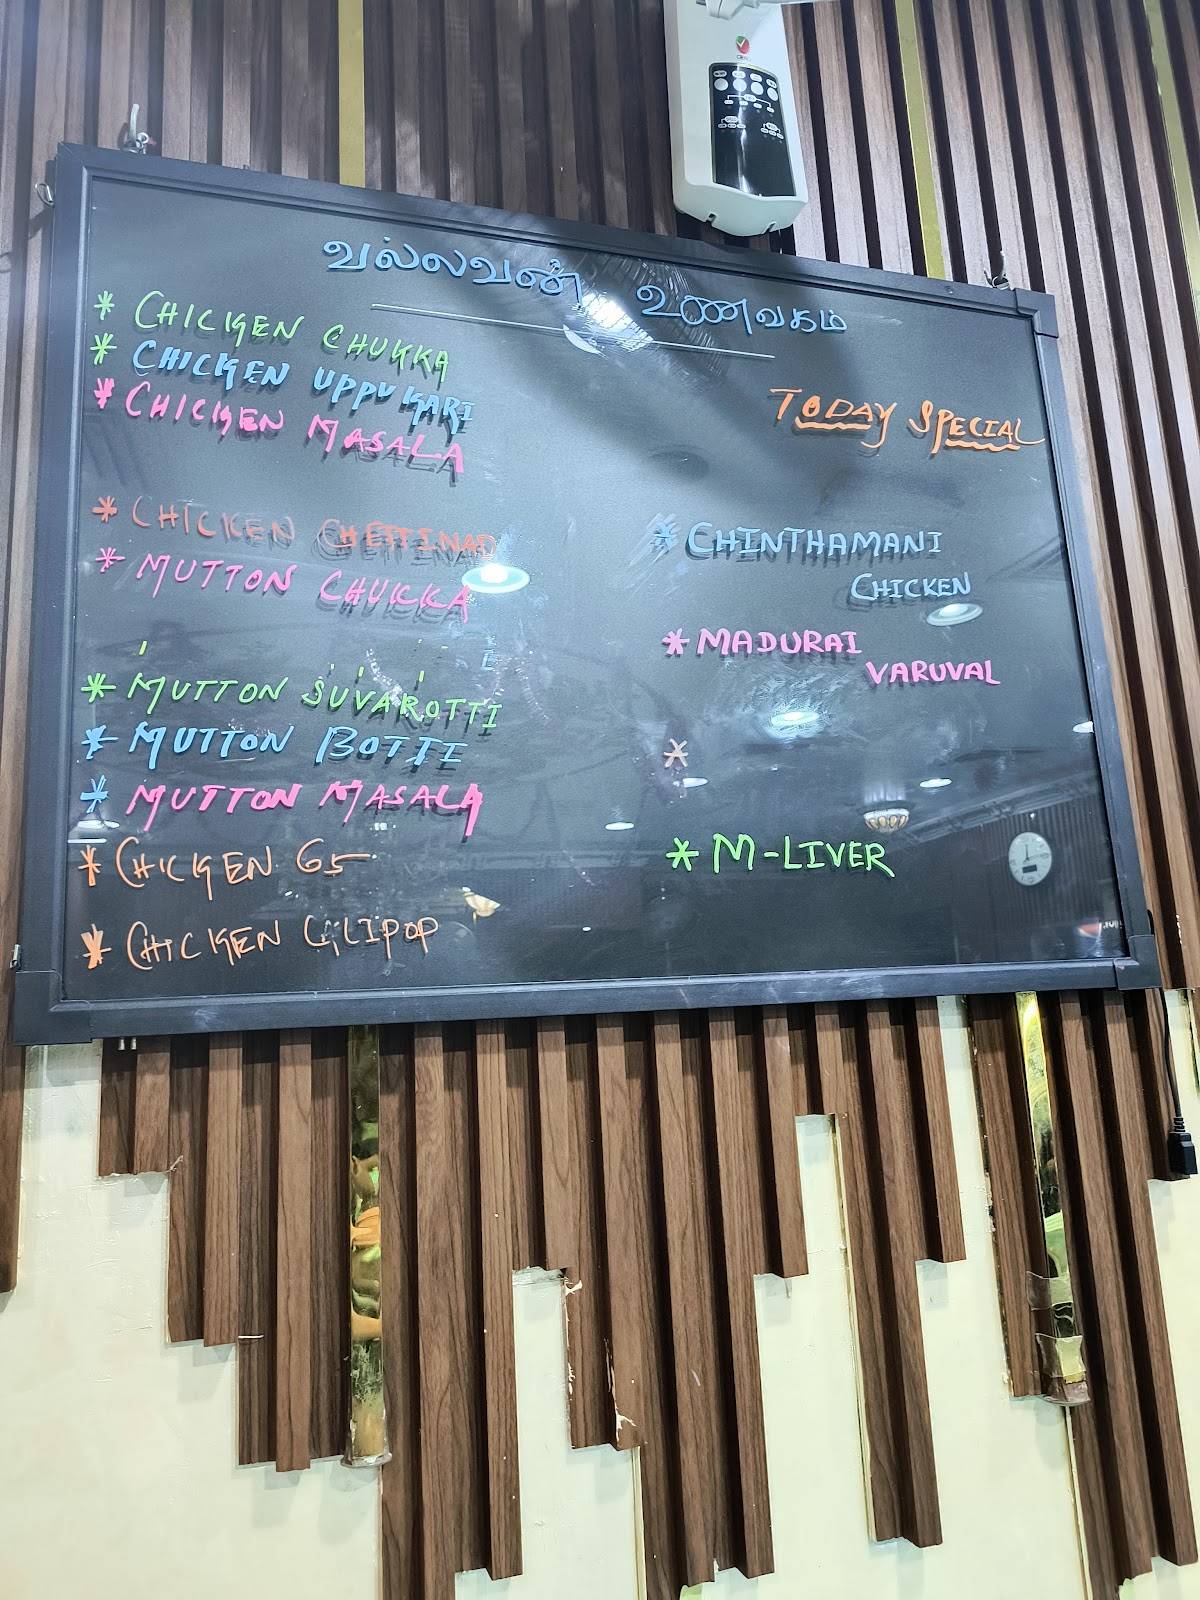 வல்லவன் உணவகம்
* CHICKEN CHUKKA
* CHICKEN UPPU KARI
* CHICKEN MASALA
* CHICKEN CHETTINAD
* MUTTON CHUKKA
* MUTTON SUVAROTTI
* MUTTON BOTTI
* MUTTON MASALA
* CHICKEN 65
* CHICKEN LILIPOP
TODAY SPECIAL
* CHINTHAMANI
CHICKEN
* MADURAI
VARUVAL
*
* M-LIVER